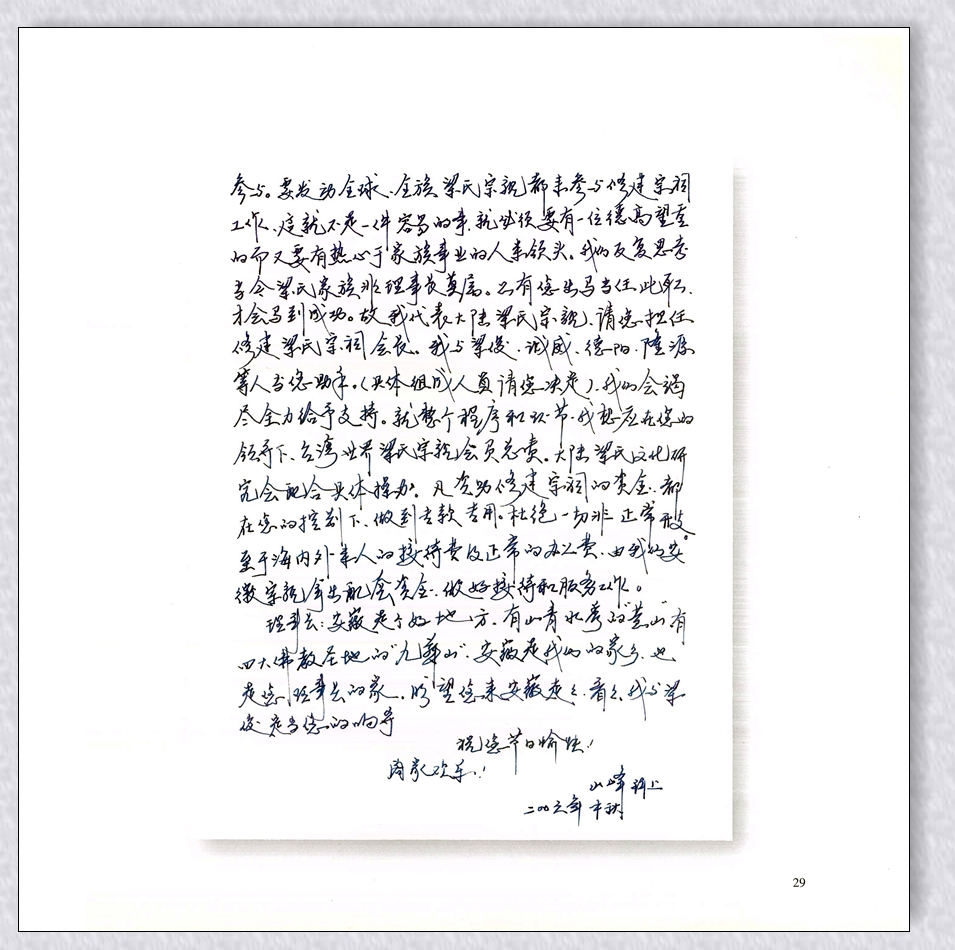 参与。要发动全球、全族梁氏宗亲都来参与修建宗祠
工作、这就不是一件容易的事、就必须要有一位德高望重
的而又要有热心于家族事业的人来领头。我们反复思考
当今梁氏家族非理事长莫属。只有您出马当任此职、
才会马到成功。故我代表大陆梁氏宗亲、请您担任
修建梁氏宗祠会长。我与梁俊、诚威、德阳、隆源
等人当您助手。(具体组成人员请您决定)、我们会竭
尽全力给予支持。就整个程序和环节、我想应在您的
领导下、台湾世界梁氏宗亲会员总责。大陆梁氏文化研
究会配合具体操办。凡资助修建宗祠的资金、都
在您的控制下、做到专款专用。杜绝一切非正常开支。
至于海内外来人的接待费及正常的办公费、由我们安
徽宗亲拿出配套资金、做好接待和服务工作。
理事长:安徽是个好地方、有山青水秀的"黄山"有
四大佛教圣地的"九华山"、安徽是我们的家乡、也
是您理事长的家、盼望您来安徽走走、看看、我与梁
俊是当您的响导
祝您节日愉快!
阖家欢乐!
山峰 谨上
二00六年中秋
29